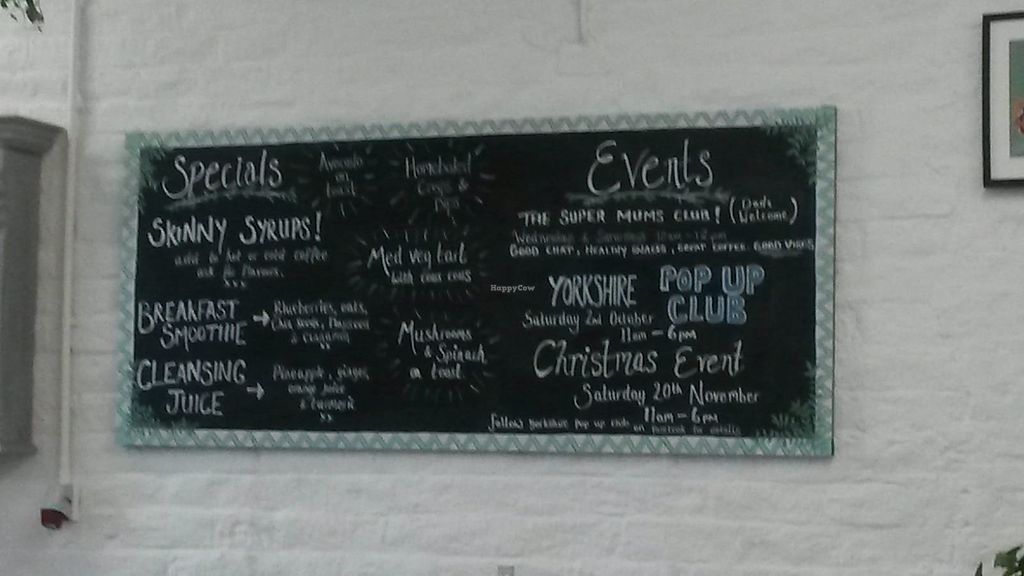 Specials
SKINNY SYRUPS!
add to hot or cold coffee
ask for flavours.
BREAKFAST
SMOOTHIE
Blueberries, oats,
CLEANSING
JUICE
Pineapple, ginger
Avocado
on
toast
Med veg tart
with cous cous
Mushrooms
& Spinach
on toast
HappyCow
Events
THE SUPER MUMS CLUB! (Dads Welcome)
GOOD CHAT, HEALTHY SNACKS, GREAT COFFEE GOOD VIBES
YORKSHIRE POP UP
CLUB
Saturday 2nd October
11am - 6pm
Christmas Event
Saturday 20th November
11am - 6pm
follow yorkshire pop up club on